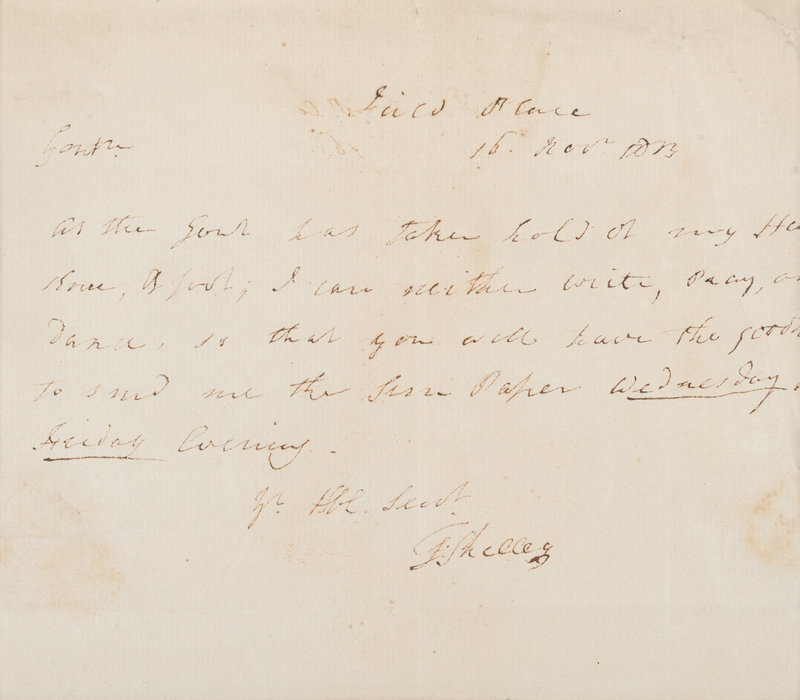 Field Place
Gentn.
16. Novr 1813
As the Gout has taken hold of my
Knee, & foot; I can neither write, Pray, or
Dance, so that you will have the
to send me the Sun Paper Wednesday
Friday Evening.
Yr. Hble. Servt.
T: Shelley